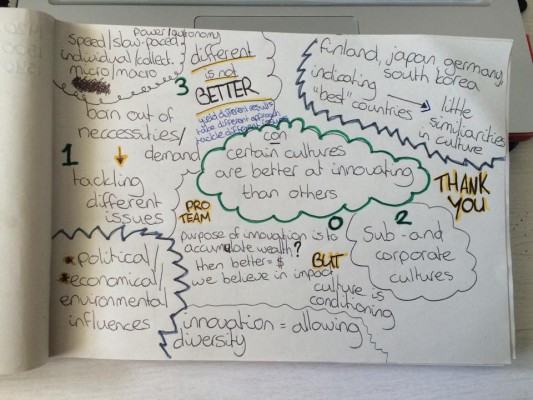 power/autonomy
speed/slow-paced
individual/collect.
micro/macro
3
different
is not
BETTER
yield different results
take different approach
tackle different issues
finland, japan, germany,
south korea
indicating
"best" countries → little
similiarities
in culture
born out of
neccessities/
demand
1
tackling
different
issues
con
certain cultures
are better at innovating
than others
0
THANK
YOU
PRO
TEAM
purpose of innovation is to
accumulate wealth?
then better = $
we believe in impact
BUT
culture is
conditioning
2
Sub- and
corporate
cultures
political/
economical/
environmental
influences
innovation = allowing
diversity